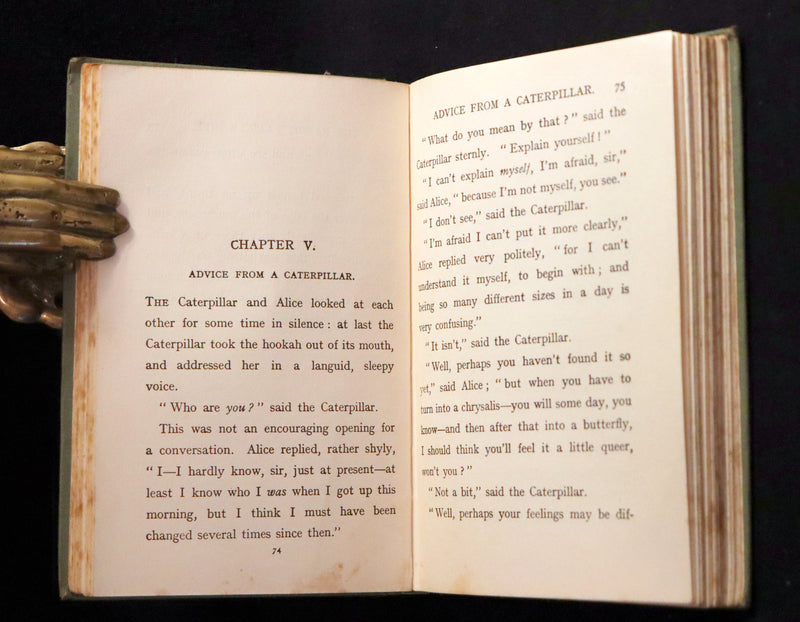 CHAPTER V.
ADVICE FROM A CATERPILLAR.
THE Caterpillar and Alice looked at each
other for some time in silence : at last the
Caterpillar took the hookah out of its mouth,
and addressed her in a languid, sleepy
voice.
“ Who are you ? ” said the Caterpillar.
This was not an encouraging opening for
a conversation. Alice replied, rather shyly,
“ I—I hardly know, sir, just at present—at
least I know who I was when I got up this
morning, but I think I must have been
changed several times since then.”
74
ADVICE FROM A CATERPILLAR. 75
“What do you mean by that ? ” said the
Caterpillar sternly. “ Explain yourself ! ”
“I can’t explain myself, I’m afraid, sir,”
said Alice, “ because I’m not myself, you see.”
“I don’t see,” said the Caterpillar.
“I’m afraid I can’t put it more clearly,”
Alice replied very politely, “for I can’t
understand it myself, to begin with ; and
being so many different sizes in a day is
very confusing.”
“It isn’t,” said the Caterpillar.
“Well, perhaps you haven’t found it so
yet,” said Alice ; “ but when you have to
turn into a chrysalis—you will some day, you
know—and then after that into a butterfly,
I should think you’ll feel it a little queer,
won’t you ? ”
“Not a bit,” said the Caterpillar.
“Well, perhaps your feelings may be dif-